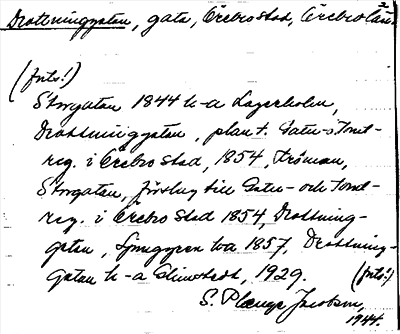 2
Drottninggatan, gata, Örebro stad, Örebro län
(forts!)
Storgatan 1844 k-a Lagerholm,
Drottninggatan, plan t. Gatu-o Tomt-
reg. i Örebro stad, 1854, Kroman,
Storgatan, förslag till Gatu- och Tomt-
reg. i Örebro stad 1854, Drottning-
gatan, Ljunggren ka 1857, Drottning-
gatan k-a Elinstedt, 1929. (forts!)
S. Jacobsen,
1944.